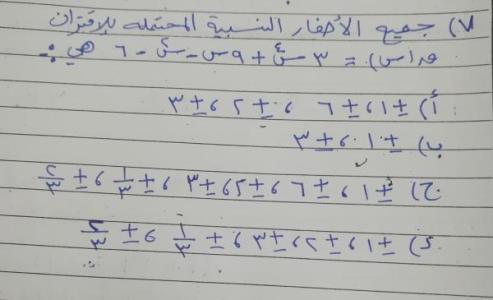 ٧) جميع الأصفار النسبية المحتملة للإقتران
ق(س) = ٣س٤ + ٩س - س٢ - ٦ هي :-
أ) ±١ ، ±٦ ، ±٢ ، ±٣
ب) ±١ ، ±٣
ج) ±١ ، ±٦ ، ±٢ ، ±٣ ، ±١/٣ ، ±٢/٣
د) ±١ ، ±٢ ، ±٣ ، ±١/٣ ، ±٢/٣